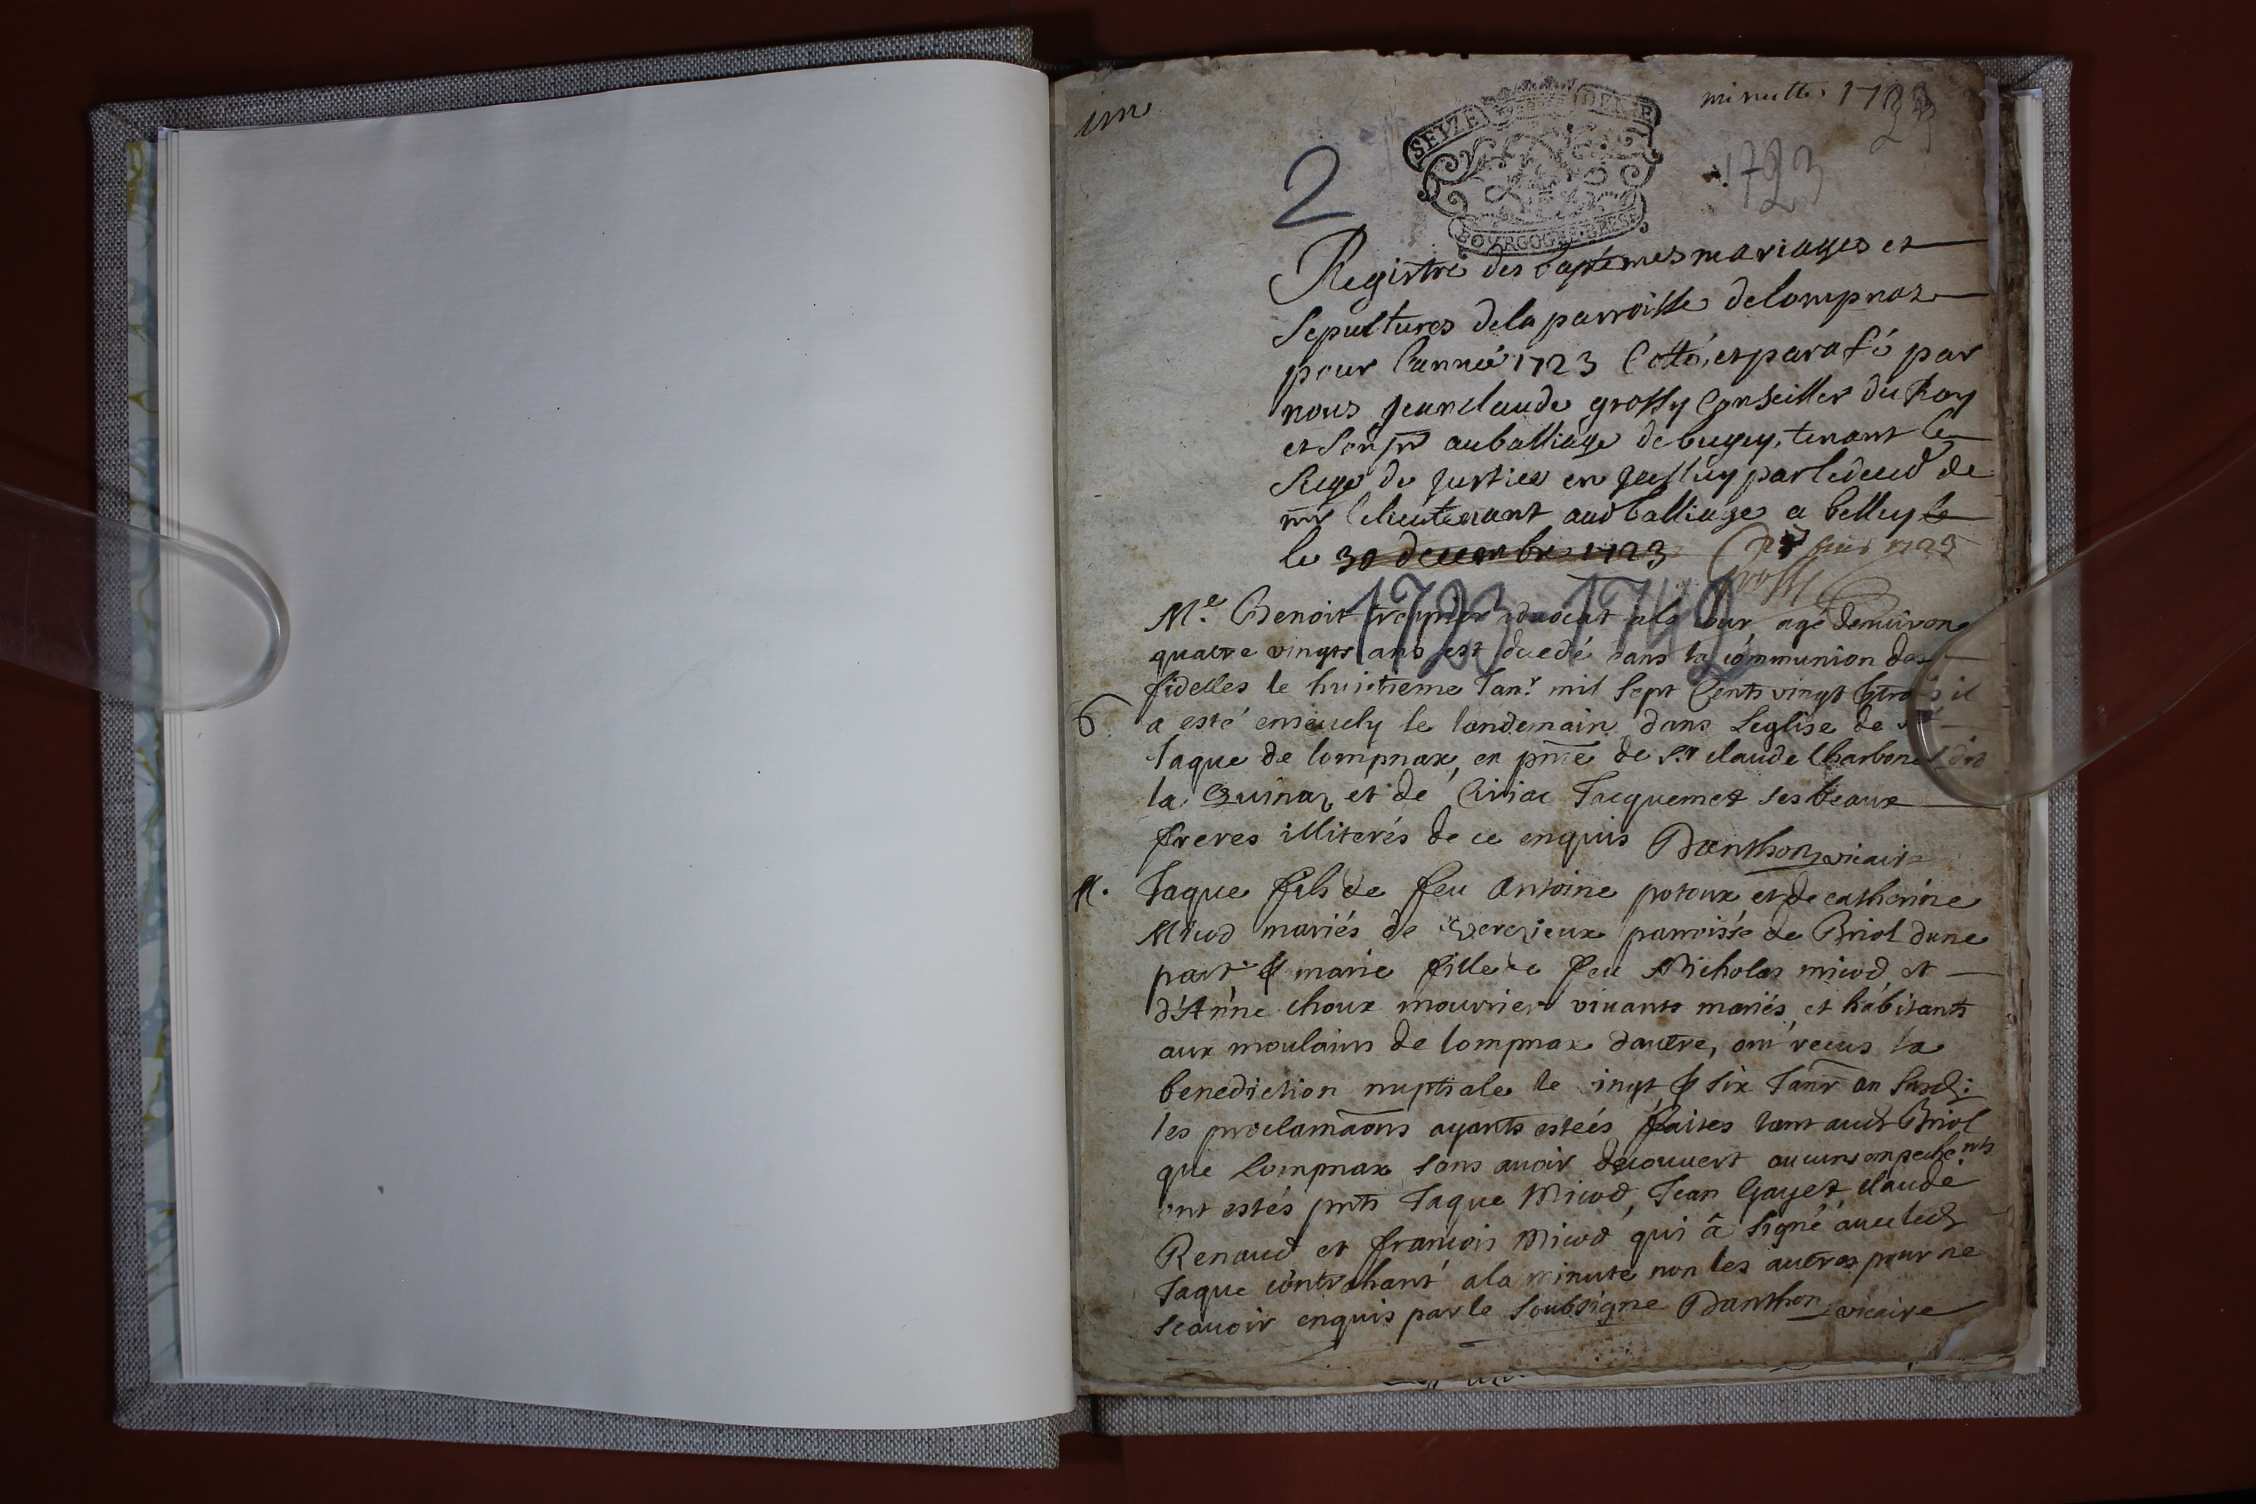 minutte 1723
SEIZE DEN
2
1723
BOURGOGNE BRESSE
Registre des baptemes mariages et
Sepultures dela parroisse delompnas
pour lannée 1723 Cotté, et parafé par
nous Jean claude grossy Conseiller du Roy
et au balliage de bugey, tenant le
Siege de Justice en par de
mr le lieutenant aud balliage a belley le
le 30 decembre 1723
1723 1742
Me. Benoit advocat ala Cour agé denuiron
quatre vingts ans est decedé dans la communion des
fidelles le huictieme Janr mil Sept Cents vingt trois il
a esté enseuely le landemain dans Leglise de st
Jaque de lompnax, en pnce de Sr claude Charbonet
la et de Ciriac Jacquemet ses beaux
freres illiterés de ce enquis Danthon vicaire
Jaque fils de feu Antoine potoux et de catherine
Micod mariés de parroisse de Briol dune
part & marie fille de feu Nicholas micod et
d'Anne choux mounier vivants mariés, et habitants
aux moulains de lompnax dautre, ont receus la
benediction nuptiale le vingt & six Janr an Susd:
les proclamaons ayants estéés faites tant aud Briol
que Lompnax sans auoir decouuert aucuns empechents
ont estés pnts Jaque Micod, Jean Gayet, claude
Renaud et francois Micod qui â signé auec led
Jaque contrahant ala minute non les autres pour ne
scauoir enquis par le soubsigne Danthon vicaire